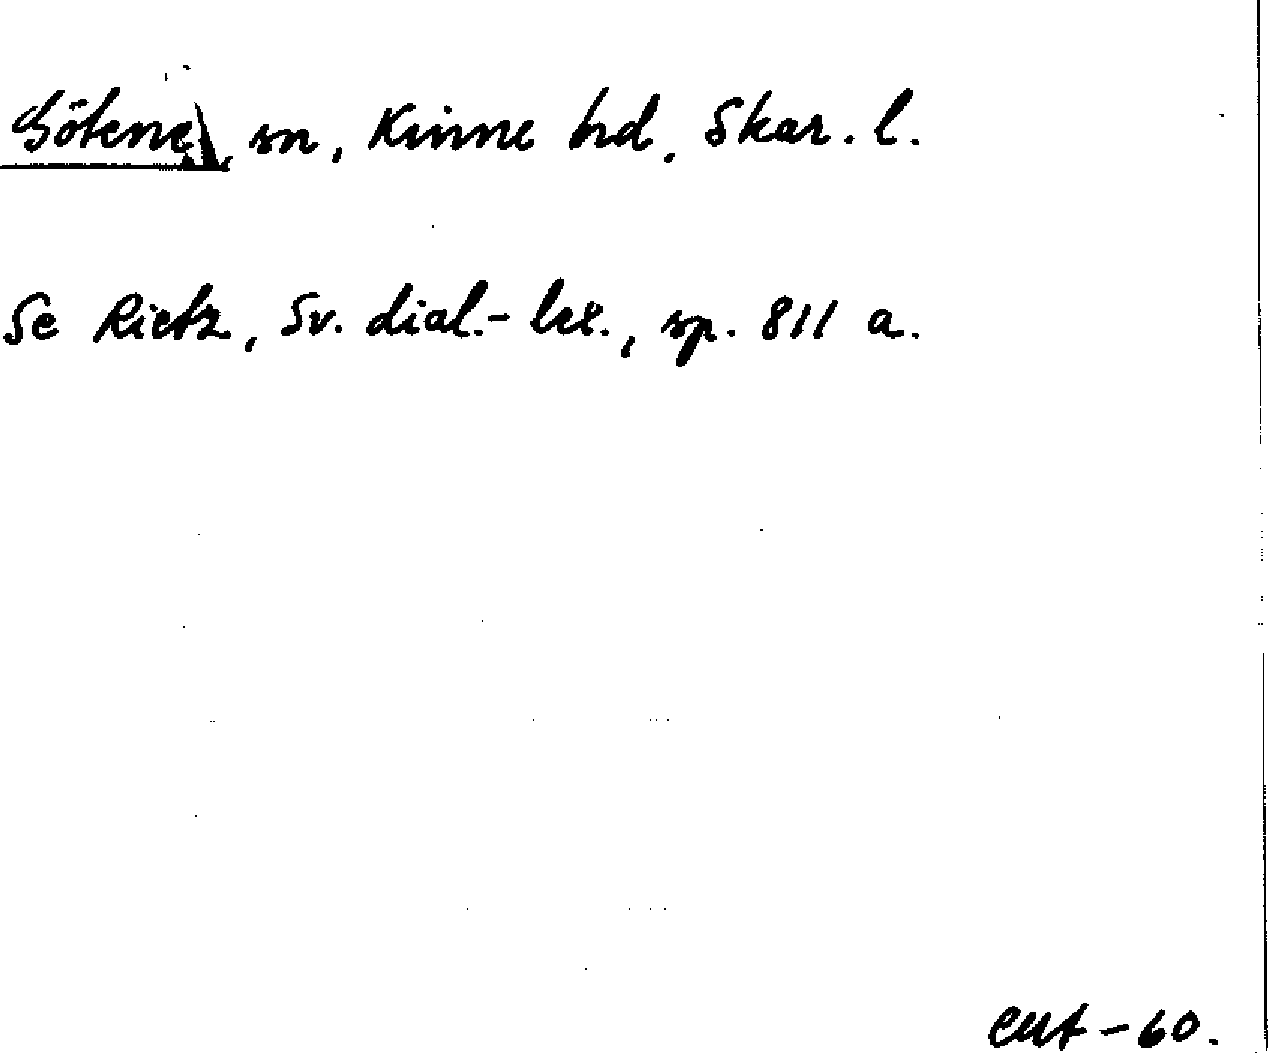 Götene, sn, Kinne hd, Skar. l.
Se Rietz, Sv. dial.-lex., sp. 811 a.